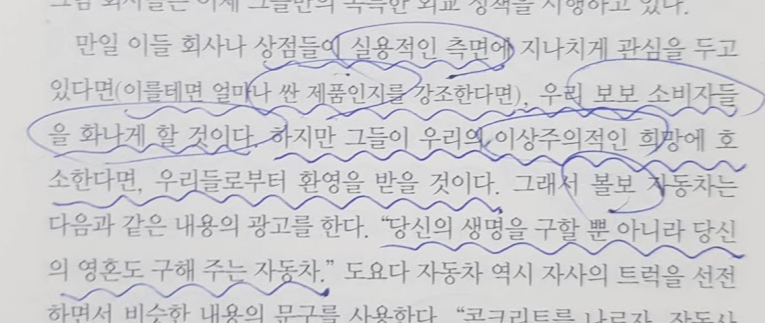 그럼 회사들은 이제 그들만의 독특한 외교 정책을 시행하고 있다.
만일 이들 회사나 상점들이 실용적인 측면에 지나치게 관심을 두고
있다면(이를테면 얼마나 싼 제품인지를 강조한다면), 우리 보보 소비자들
을 화나게 할 것이다. 하지만 그들이 우리의 이상주의적인 희망에 호
소한다면, 우리들로부터 환영을 받을 것이다. 그래서 볼보 자동차는
다음과 같은 내용의 광고를 한다. “당신의 생명을 구할 뿐 아니라 당신
의 영혼도 구해 주는 자동차.” 도요다 자동차 역시 자사의 트럭을 선전
하면서 비슷한 내용의 문구를 사용한다. “콘크리트를 나르자, 작동사